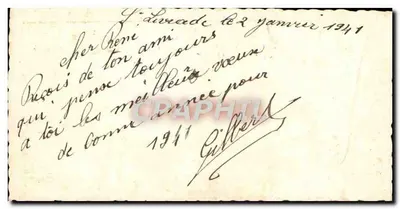 Ste Livrade le 2 janvier 1941
cher René
Reçois de ton ami
qui pense toujours
à toi les meilleurs vœux
de bonne année pour
1941
Gilbert